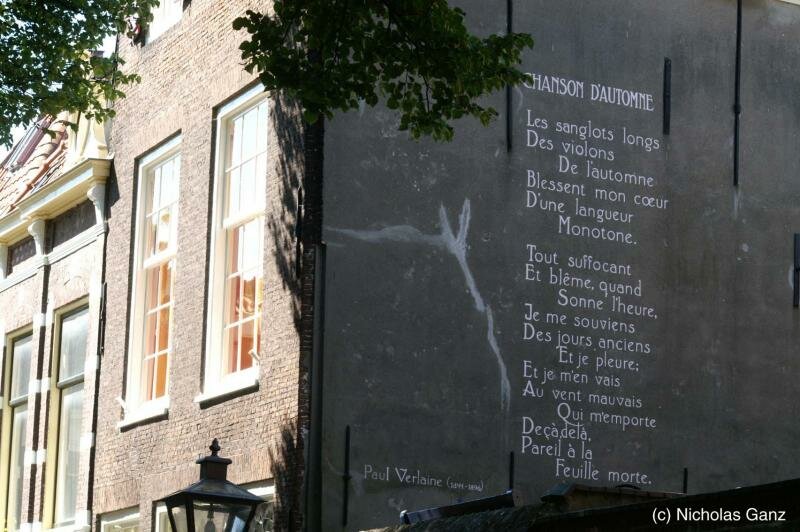 CHANSON D'AUTOMNE
Les sanglots longs
Des violons
De l'automne
Blessent mon cœur
D'une langueur
Monotone.
Tout suffocant
Et blême, quand
Sonne l'heure,
Je me souviens
Des jours anciens
Et je pleure;
Et je m'en vais
Au vent mauvais
Qui m'emporte
Deçà, delà,
Pareil à la
Feuille morte.
Paul Verlaine (1844-1896)
(c) Nicholas Ganz